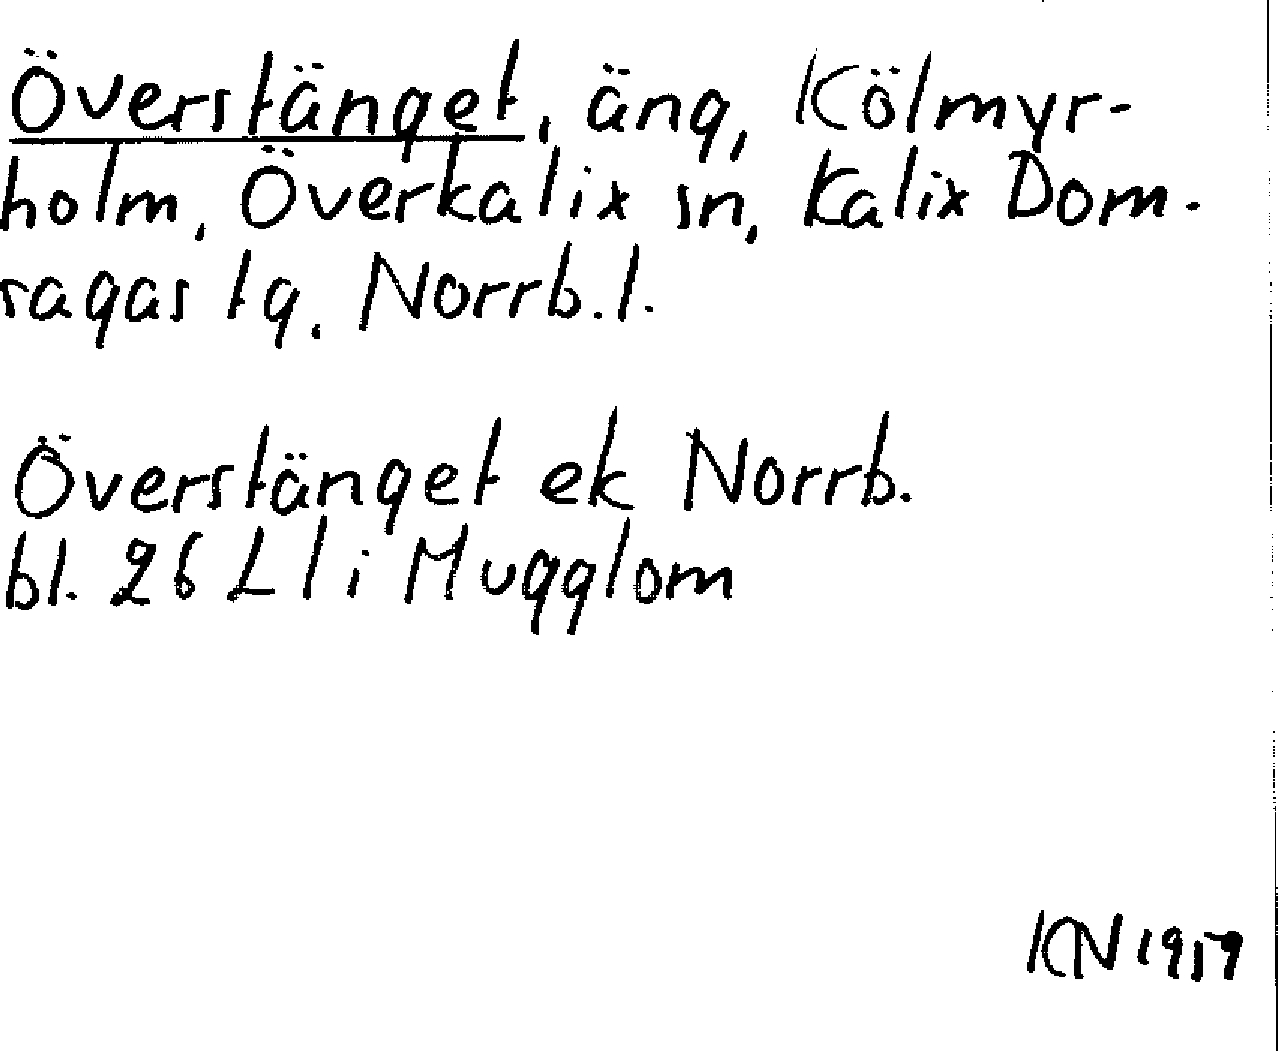 Överstänget, äng, Kölmyr-
holm, Överkalix sn, Kalix Dom-
sagas tg. Norrb. l.
Överstänget ek Norrb.
bl. 26 L l i Mugglom
KN 1959